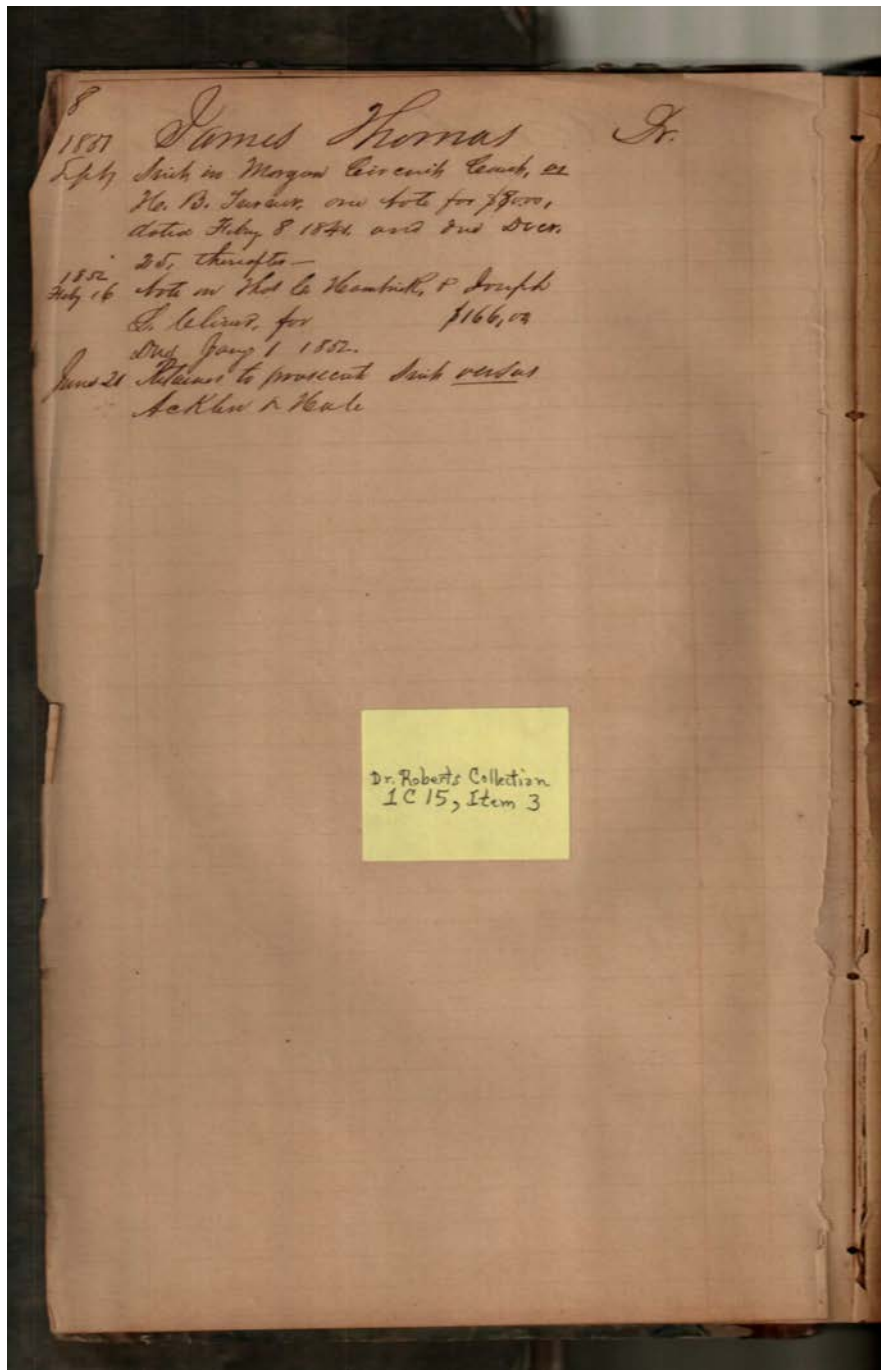 8
1851 James Thomas Dr.
Sept Suit in Morgan Circuit Court, vs
H. B. Turner, one note for
dated Feby 8 184 and due Decr.
25, thereafter —
1852
Feby 16 Note on Thos C. Hambrick, & Joseph
S. Cline, for $166,00
Due Jany 1 1852.
June 21 Retainer to prosecute Suit versus
Acklen & Hale
Dr. Roberts Collection
1 C 15, Item 3